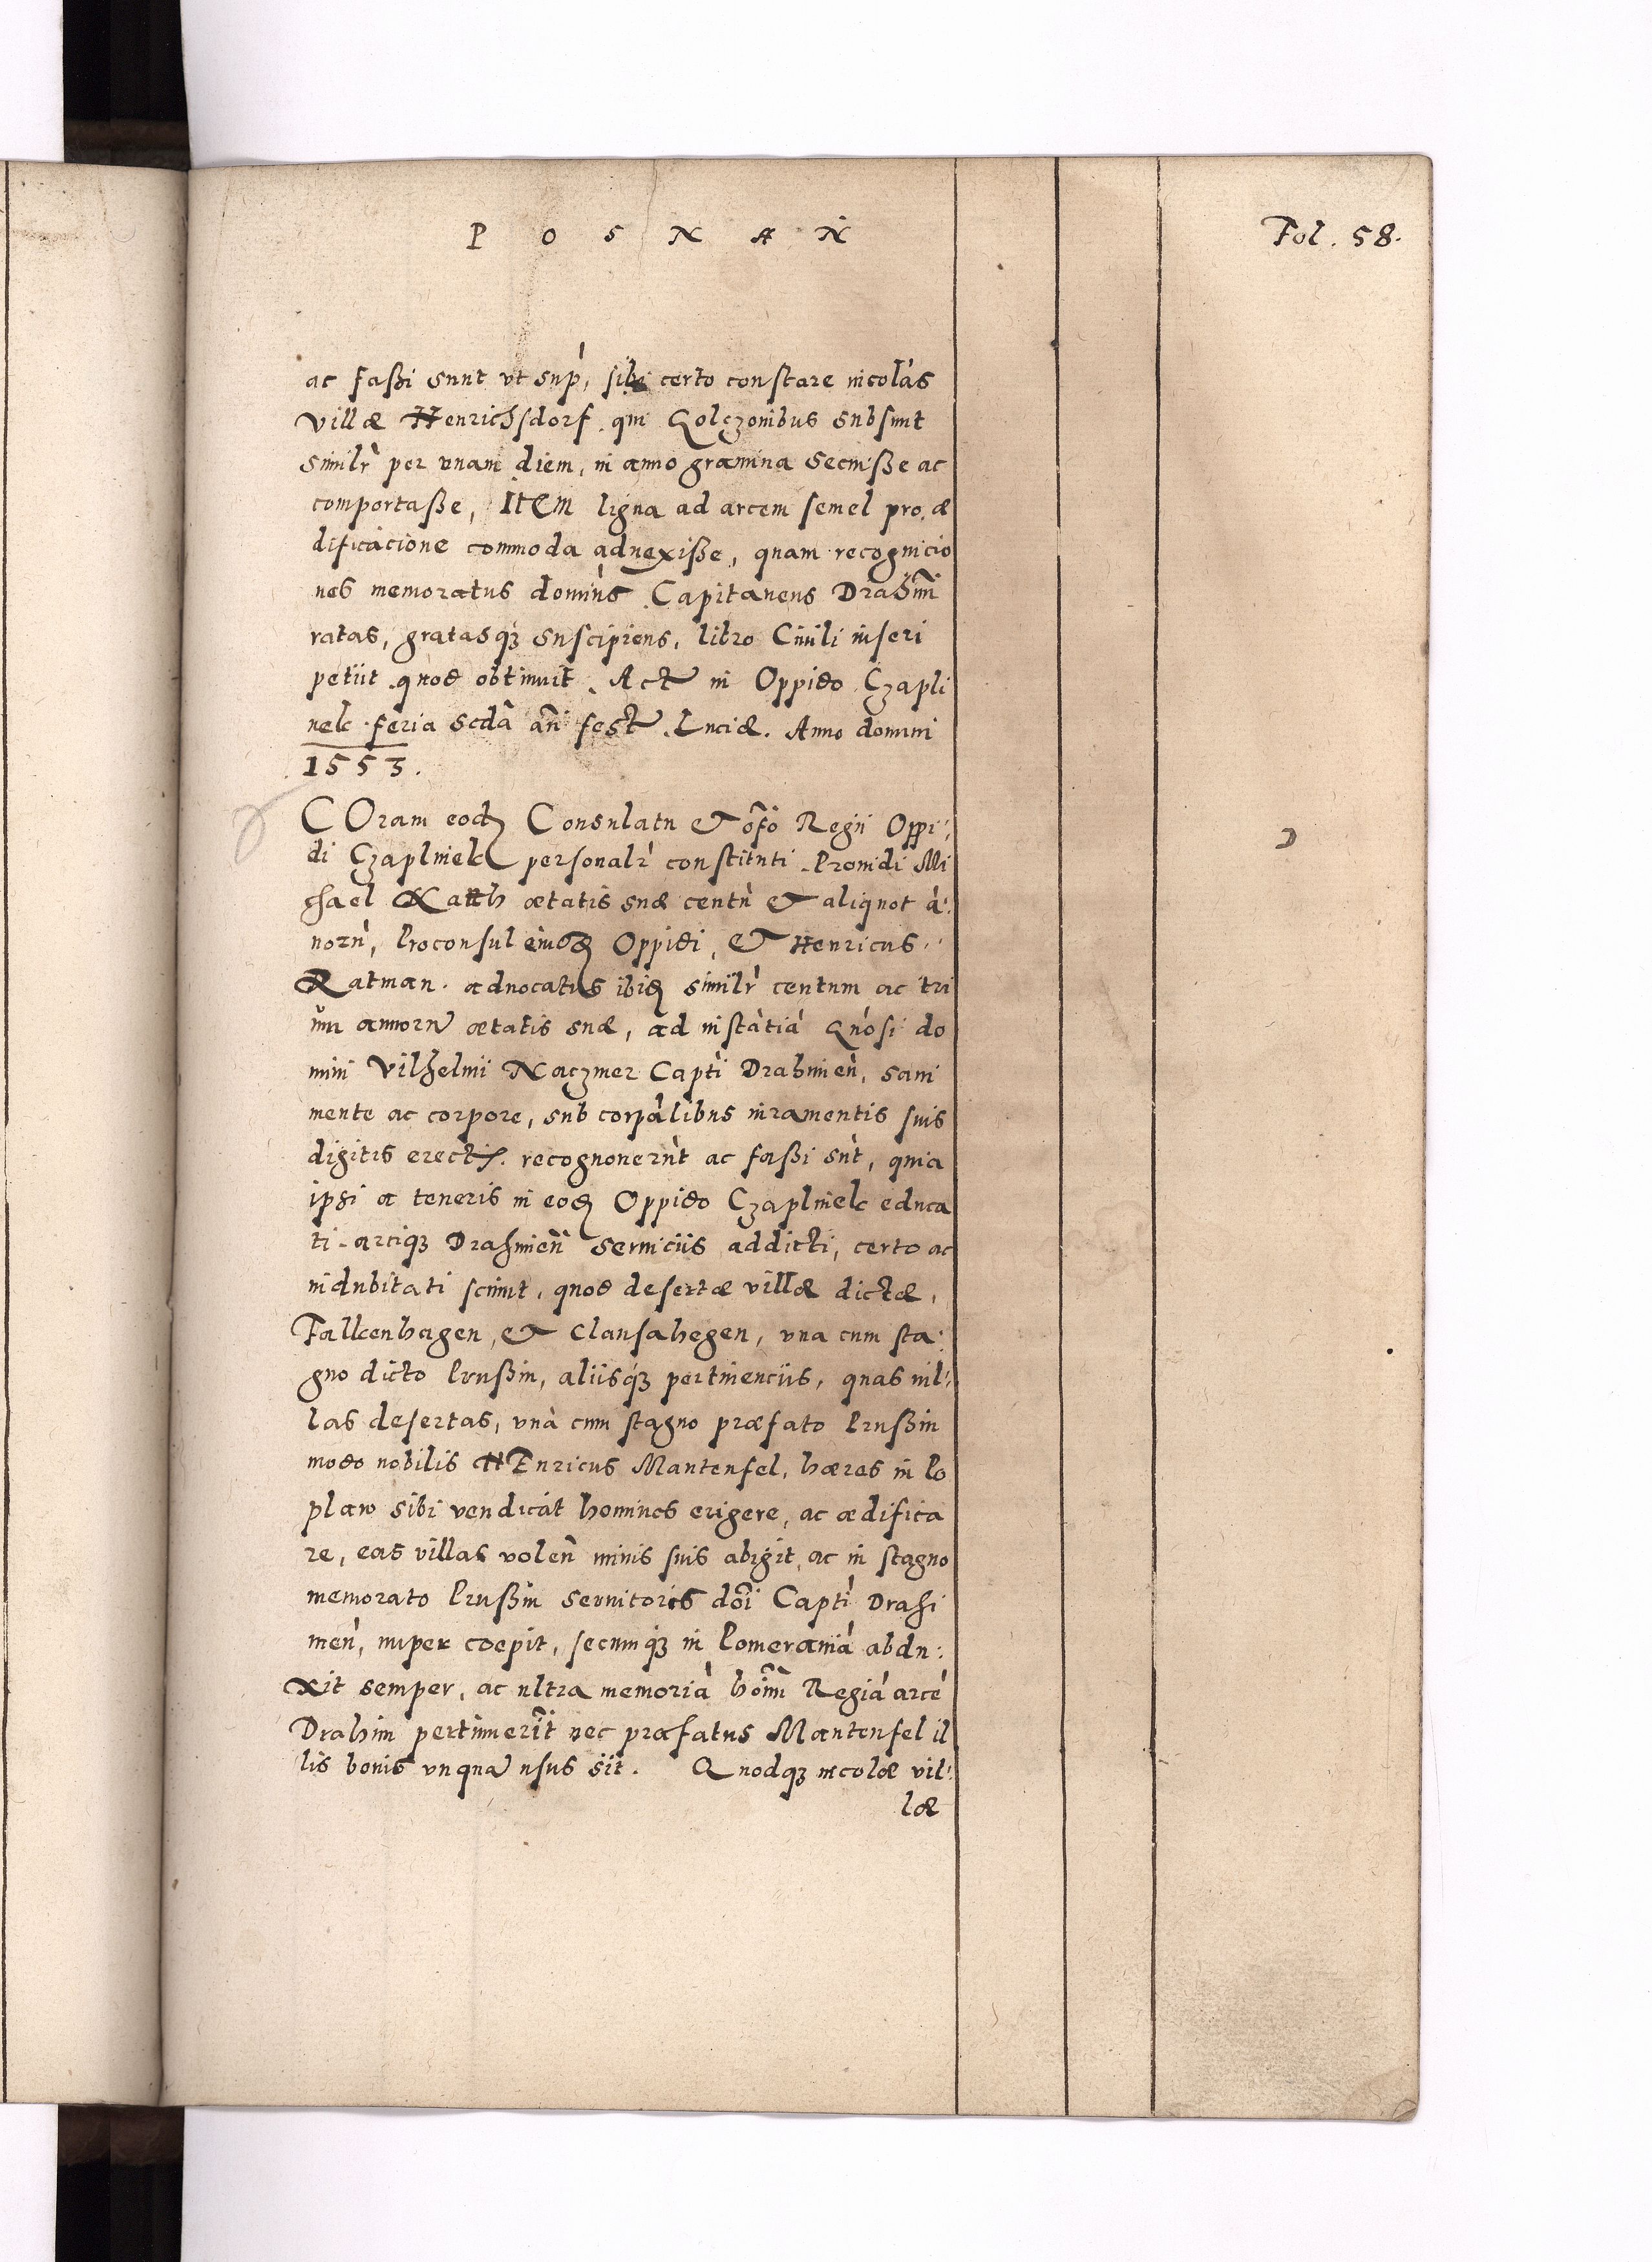 P O S N A N
Fol. 58.
ac faßi sunt vt sup̀, sibi certo constare incolàs
villæ Henrichsdorf qui Golczonibus subsunt
similr̀ per vnam diem, in anno gramina secuiße ac
comportaße, Item ligna ad arcem semel pro æ
dificàcione commoda advexiße, quam recognicio
nes memoratus dominùs Capitaneus Drahim̃
ratas, gratasqꝫ suscipiens, libro Ciuili inseri
petiit quod obtinuit. Act in Oppido Czapli
nek feria scdã añ fest Luciæ. Anno domini
1553.
COram eod Consulatu et offõ Regii Oppi:
di Czaplinek personalr̀ constituti Prouidi Mi
chael Rath ætatis suæ centù et aliquot à:
norù, Proconsul eiusd Oppidi, et Henricus
Ratman aduocatus ibid similr̀ centum ac tri
um annorù ætatis suæ, ad instàtià Gnòsi do
mini Vilhelmi Naczmer Capti Drahimeñ, sani
mente ac corpore, sub corpàlibus iuramentis suis
digitis erectis. recognouerùt ac faßi sùt, quia
ipsi a teneris in eod Oppido Czaplinek educa
ti arciqꝫ Drahimeñ seruiciis addicti, certo ac
indubitati sciunt, quod desertæ villæ dictæ,
Falkenhagen, et Clausahegen, vna cum sta:
gno dicto Prußin, aliisqꝫ pertinenciis, quas vil:
las desertas, vnà cum stagno præfato Prußin
modo nobilis HEnricus Mantenfel, hæres in Po
plaw sibi vendicàt homines erigere, ac ædifica
re, eas villas voleñ minis suis abigit, ac in stagno
memorato Prußin seruitores dõi Capti Drahi
meñ, nuper coepit, secumqꝫ in Pomeranià abdu:
xit semper, ac vltra memorià hom̃ Regià arcè
Drahim pertinuerit̃ nec præfatus Mantenfel il
lis bonis vnquà vsus sit. Quodqꝫ incolæ vil:
læ
D